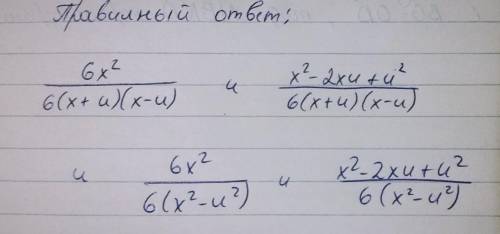 Правилный ответ:
6x²/6(x+u)(x-u) и x²-2xu+u²/6(x+u)(x-u)
и 6x²/6(x²-u²) и x²-2xu+u²/6(x²-u²)